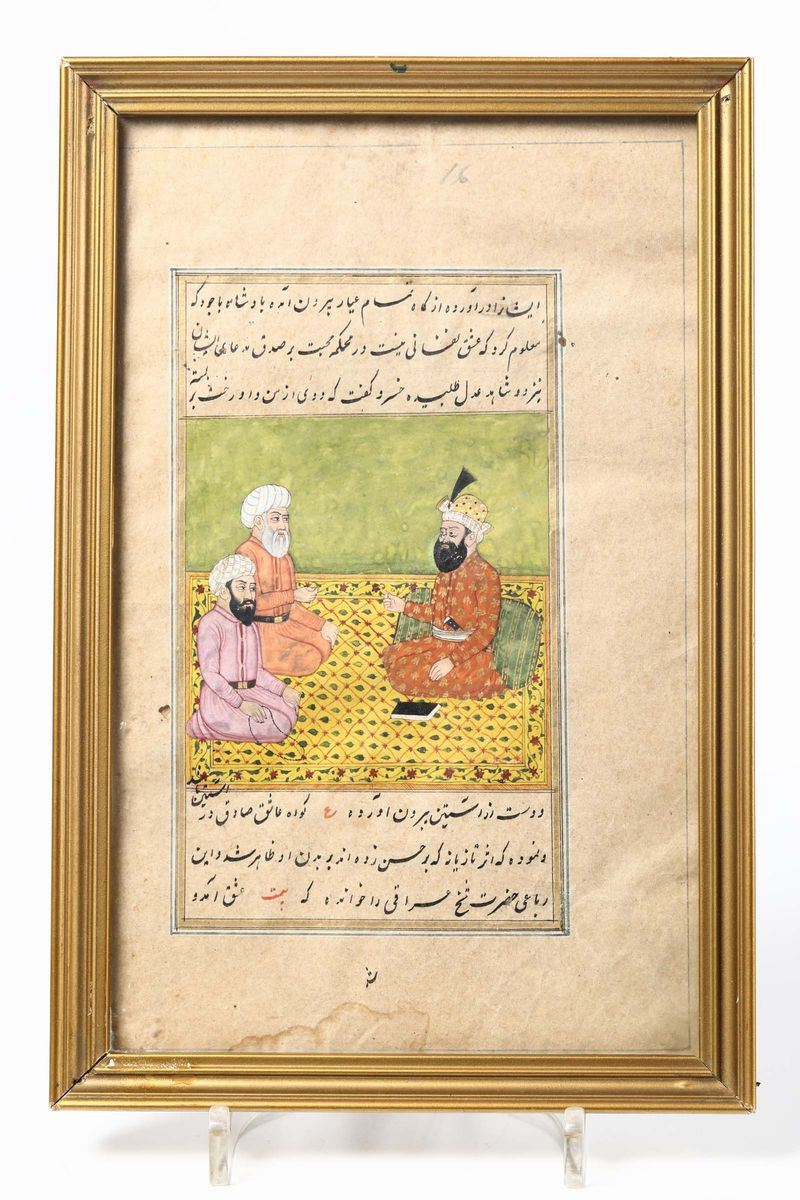 16
ایشانرا در آورده از کاه تمام عیار بیرون آمده بادشاه با وجودکه
معلوم کرد که عشق نفسانی نیست در محکمه محبت بر صدق مدعای ایشان
نیز دو شاهد عدل طلبیده خسرو گفت که دوی از من و او رخت بر بسته
و دست از آستین بیرون آورده ع گواه عاشق صادق در آستین باشد
و نموده که اثر تازیانه که بر حسن زده اند بر بدن او ظاهر شد و این
رباعی حضرت شیخ عراقی را خوانده که بیت عشق آمد و